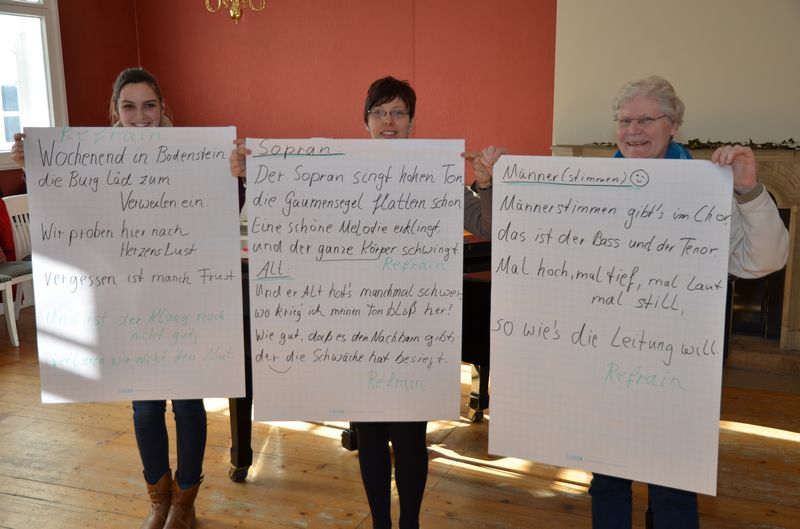 Refrain
Wochenend in Bodenstein
die Burg läd zum
Verweilen ein.
Wir proben hier nach
Herzens Lust
vergessen ist manch Frust
Und ist der Klang noch
nicht gut,
verlieren wir nicht den Mut
Sopran:
Der Sopran singt hohen Ton
die Gaumensegel flattern schon
Eine schöne Melodie erklingt,
und der ganze Körper schwingt
Refrain
Alt:
Und er Alt hat's manchmal schwer,
wo krieg ich meinen Ton bloß her?
Wie gut, daß es den Nachbarn gibt,
der die Schwäche hat besiegt.
Refrain
Männer(stimmen)
Männerstimmen gibt's im Chor,
das ist der Bass und der Tenor.
Mal hoch, mal tief, mal laut
mal still,
so wie's die Leitung will.
Refrain